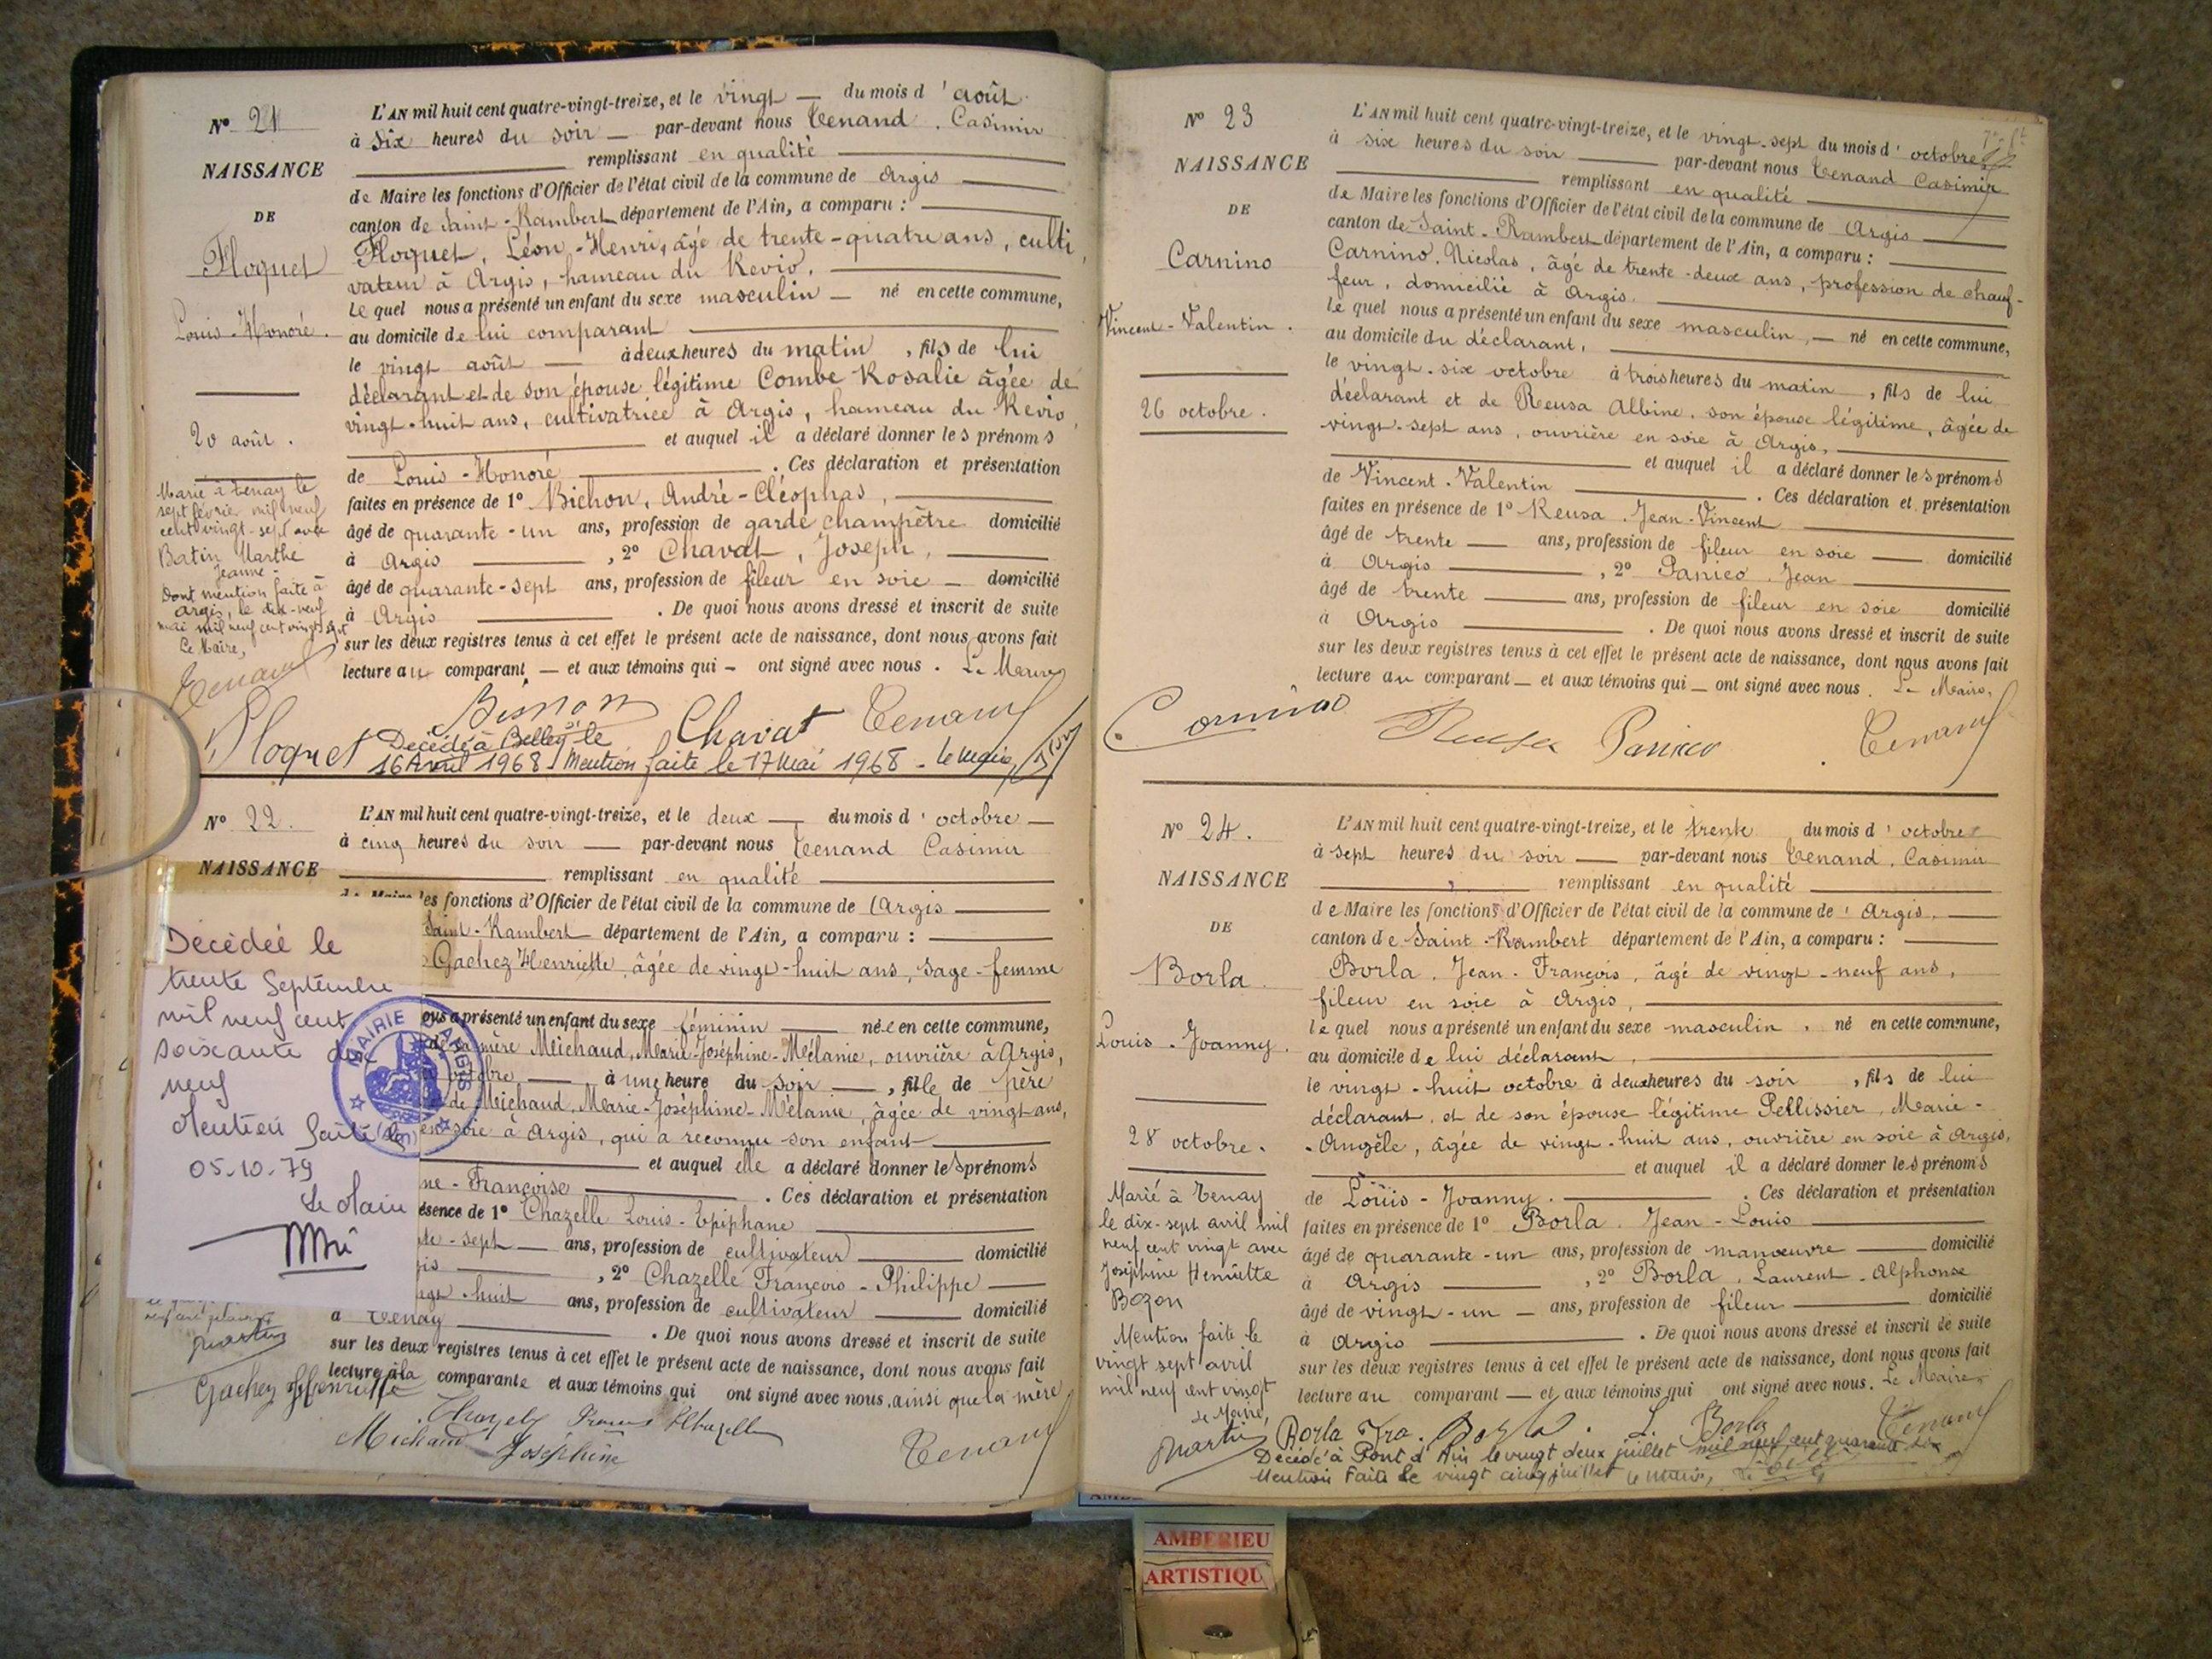 N° 21
NAISSANCE
DE
Floquet
Louis-Honoré.
20 août.
Marié à Tenay le
sept février mil neuf
cent vingt-sept avec
Batin Marthe
Jeanne.
Dont mention faite à
Argis, le dix-neuf
mai mil neuf cent vingt sept
Le Maire,
Tenand
L'AN mil huit cent quatre-vingt-treize, et le vingt — du mois d'août
à six heures du soir — par-devant nous Tenand, Casimir
remplissant en qualité
de Maire les fonctions d'Officier de l'état civil de la commune de Argis
canton de Saint-Rambert département de l'Ain, a comparu :
Floquet, Léon-Henri, âgé de trente-quatre ans, culti
vateur à Argis, hameau du Revio,
Le quel nous a présenté un enfant du sexe masculin — né en cette commune,
au domicile de lui comparant
le vingt août — à deux heures du matin, fils de lui
déclarant et de son épouse légitime Combe Rosalie âgée de
vingt-huit ans, cultivatrice à Argis, hameau du Revio,
et auquel il a déclaré donner les prénoms
de Louis-Honoré. Ces déclaration et présentation
faites en présence de 1° Bichon, André-Cléophas,
âgé de quarante-un ans, profession de garde champêtre domicilié
à Argis, 2° Chavat, Joseph,
âgé de quarante-sept ans, profession de fileur en soie — domicilié
à Argis. De quoi nous avons dressé et inscrit de suite
sur les deux registres tenus à cet effet le présent acte de naissance, dont nous avons fait
lecture au comparant — et aux témoins qui — ont signé avec nous. Le Maire,
Floquet Bichon Chavat Tenand
Décédé à Belley le
16 Avril 1968. Mention faite le 17 Mai 1968 - Le Maire,
N° 22.
NAISSANCE
Décédée le
trente Septembre
mil neuf cent
soixante dix
neuf
Mention faite le
05-10-79
Le Maire
MAIRIE D'ARGIS
(Ain)
Martin
L'AN mil huit cent quatre-vingt-treize, et le deux — du mois d'octobre —
à cinq heures du soir — par-devant nous Tenand Casimir
remplissant en qualité
de Maire les fonctions d'Officier de l'état civil de la commune de Argis
Saint-Rambert département de l'Ain, a comparu :
Gachez Henriette, âgée de vingt-huit ans, sage-femme
ous a présenté un enfant du sexe féminin — née en cette commune,
de sa mère Michaud, Marie-Joséphine-Mélanie, ouvrière à Argis,
octobre — à une heure du soir —, fille de père
de Michaud, Marie-Joséphine-Mélanie, âgée de vingt ans,
en soie à Argis, qui a reconnu son enfant
et auquel elle a déclaré donner les prénoms
ne-Françoise. Ces déclaration et présentation
ésence de 1° Chazelle Louis-Epiphane
te-sept — ans, profession de cultivateur domicilié
gis, 2° Chazelle François-Philippe
ngt-huit ans, profession de cultivateur domicilié
à Tenay. De quoi nous avons dressé et inscrit de suite
sur les deux registres tenus à cet effet le présent acte de naissance, dont nous avons fait
lecture à la comparante et aux témoins qui ont signé avec nous, ainsi que la mère
Gachez Henriette
Michaud Joséphine
Tenand
N° 23
NAISSANCE
DE
Carnino
Vincent-Valentin.
26 octobre.
L'AN mil huit cent quatre-vingt-treize, et le vingt-sept du mois d'octobre
à six heures du soir — par-devant nous Tenand Casimir
remplissant en qualité
de Maire les fonctions d'Officier de l'état civil de la commune de Argis
canton de Saint-Rambert département de l'Ain, a comparu :
Carnino, Nicolas, âgé de trente-deux ans, profession de chauf-
feur, domicilié à Argis.
Le quel nous a présenté un enfant du sexe masculin, — né en cette commune,
au domicile du déclarant,
le vingt-six octobre à trois heures du matin, fils de lui
déclarant et de Reusa Albine, son épouse légitime, âgée de
vingt-sept ans, ouvrière en soie à Argis,
et auquel il a déclaré donner les prénoms
de Vincent-Valentin. Ces déclaration et présentation
faites en présence de 1° Reusa, Jean-Vincent
âgé de trente — ans, profession de fileur en soie — domicilié
à Argis, 2° Panico, Jean
âgé de trente — ans, profession de fileur en soie domicilié
à Argis. De quoi nous avons dressé et inscrit de suite
sur les deux registres tenus à cet effet le présent acte de naissance, dont nous avons fait
lecture au comparant — et aux témoins qui — ont signé avec nous. Le Maire,
Carnino Reusa Panico Tenand
N° 24.
NAISSANCE
DE
Borla
Louis-Joanny.
28 octobre.
Marié à Tenay
le dix-sept avril mil
neuf cent vingt avec
Joséphine Henriette
Bozon
Mention faite le
vingt sept avril
mil neuf cent vingt
Le Maire,
Martin
L'AN mil huit cent quatre-vingt-treize, et le trente du mois d'octobre
à sept heures du soir — par-devant nous Tenand, Casimir
remplissant en qualité
de Maire les fonctions d'Officier de l'état civil de la commune de Argis,
canton de Saint-Rambert département de l'Ain, a comparu :
Borla, Jean-François, âgé de vingt-neuf ans,
fileur en soie à Argis,
lequel nous a présenté un enfant du sexe masculin, né en cette commune,
au domicile de lui déclarant,
le vingt-huit octobre à deux heures du soir, fils de lui
déclarant, et de son épouse légitime Pellissier, Marie-
-Angèle, âgée de vingt-huit ans, ouvrière en soie à Argis,
et auquel il a déclaré donner les prénoms
de Louis-Joanny. Ces déclaration et présentation
faites en présence de 1° Borla, Jean-Louis
âgé de quarante-un ans, profession de manœuvre domicilié
à Argis, 2° Borla, Laurent-Alphonse
âgé de vingt-un — ans, profession de fileur domicilié
à Argis. De quoi nous avons dressé et inscrit de suite
sur les deux registres tenus à cet effet le présent acte de naissance, dont nous avons fait
lecture au comparant — et aux témoins qui ont signé avec nous. Le Maire,
Borla Fra. Borla. L. Borla Tenand
Décédé à Pont d'Ain le vingt deux juillet mil neuf cent quarante six
Mention faite le vingt cinq juillet Le Maire,
AMBERIEU
ARTISTIQU